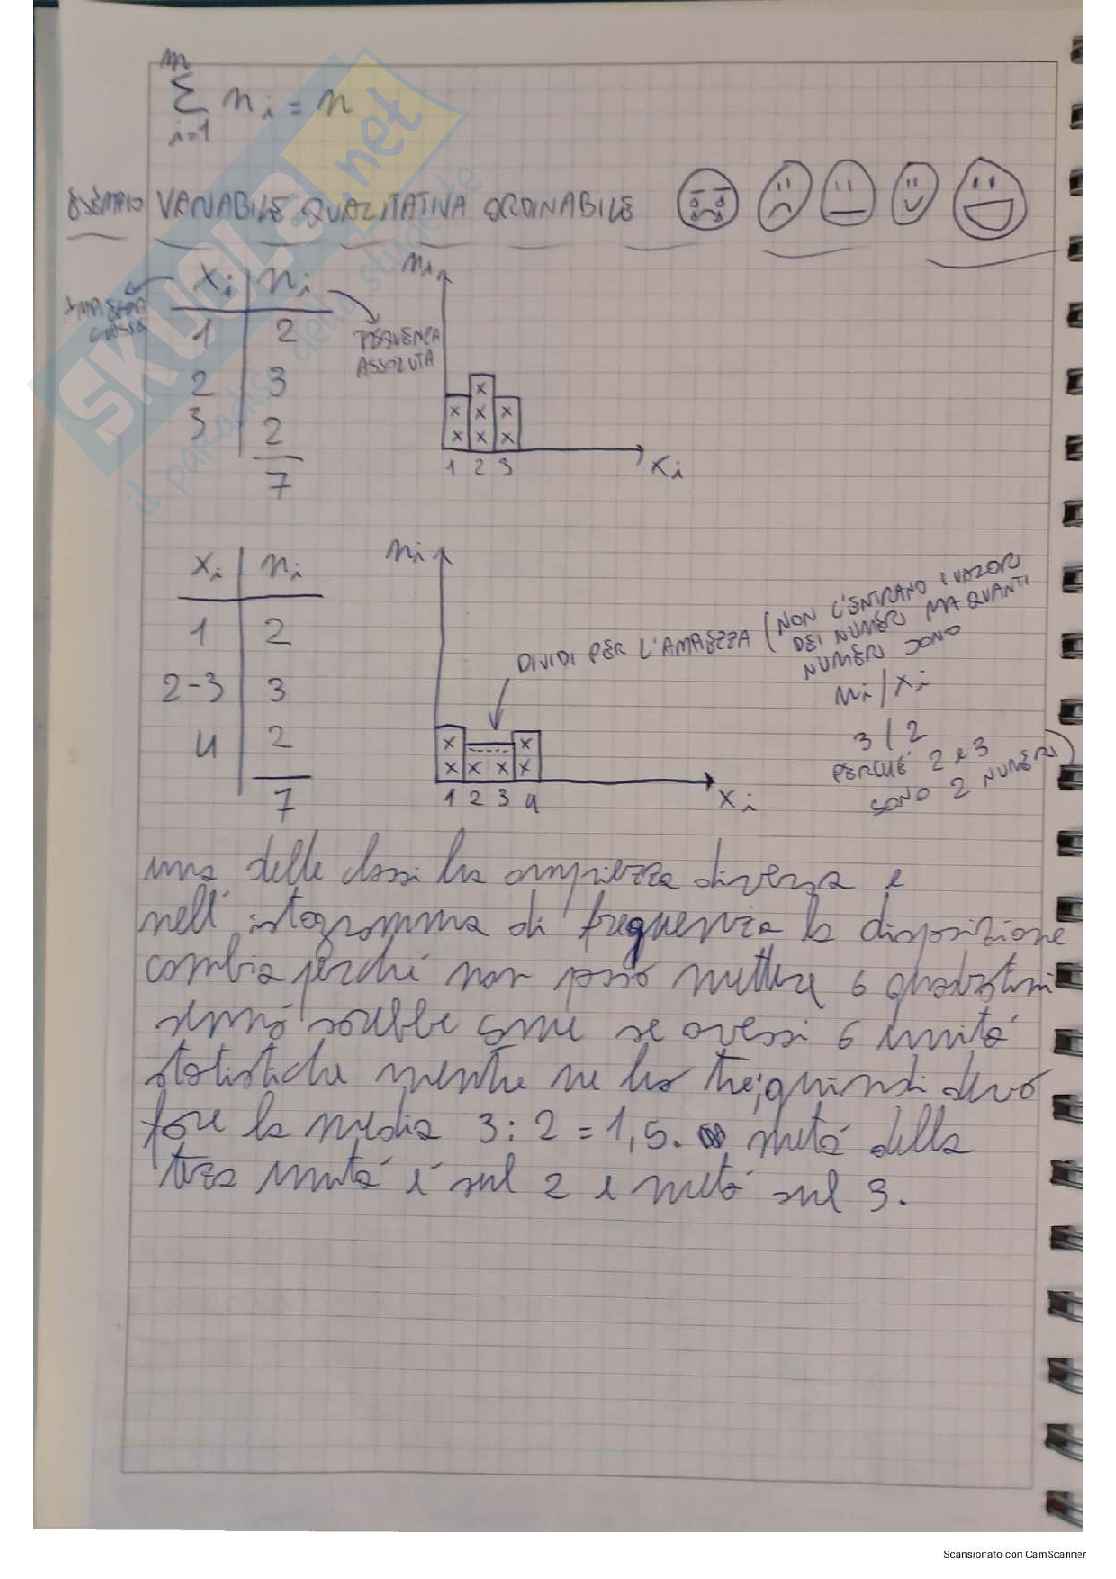 m
Σ ni = n
i=1
ESEMPIO VARIABILE QUALITATIVA ORDINABILE
xi ni
FREQUENZA
ASSOLUTA
1 2
2 3
3 2
7
ni
x
x x x
x x x
1 2 3 xi
xi ni
1 2
2-3 3
4 2
7
ni
DIVIDI PER L'AMPIEZZA (NON C'ENTRANO I VALORI
DEI NUMERI MA QUANTI
NUMERI SONO
ni/xi
3/2
PERCHÉ 2 e 3
SONO 2 NUMERI)
x x
x x x x
1 2 3 4 xi
una delle classi ha ampiezza diversa e
nell'istogramma di frequenza la disposizione
cambia perché non posso mettere 6 quadratini
sennò sarebbe come se avessi 6 unità
statistiche mentre ne ho tre; quindi devo
fare la media 3:2=1,5. metà della
terza unità è sul 2 e metà sul 3.
SKUOLA.net
il paradiso dello studente
Scansionato con CamScanner